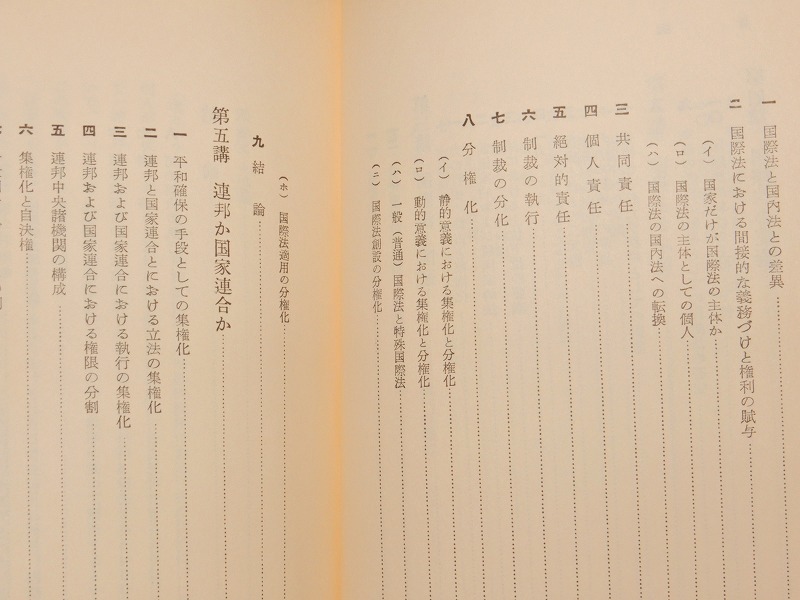 一 国際法と国内法との差異
二 国際法における間接的な義務づけと権利の賦与
（イ） 国家だけが国際法の主体か
（ロ） 国際法の主体としての個人
（ハ） 国際法の国内法への転換
三 共同責任
四 個人責任
五 絶対的責任
六 制裁の執行
七 制裁の分化
八 分権化
（イ） 静的意義における集権化と分権化
（ロ） 動的意義における集権化と分権化
（ハ） 一般（普通）国際法と特殊国際法
（ニ） 国際法創設の分権化
（ホ） 国際法適用の分権化
九 結論
第五講 連邦か国家連合か
一 平和確保の手段としての集権化
二 連邦と国家連合とにおける立法の集権化
三 連邦および国家連合における執行の集権化
四 連邦および国家連合における権限の分割
五 連邦中央諸機関の構成
六 集権化と自決権